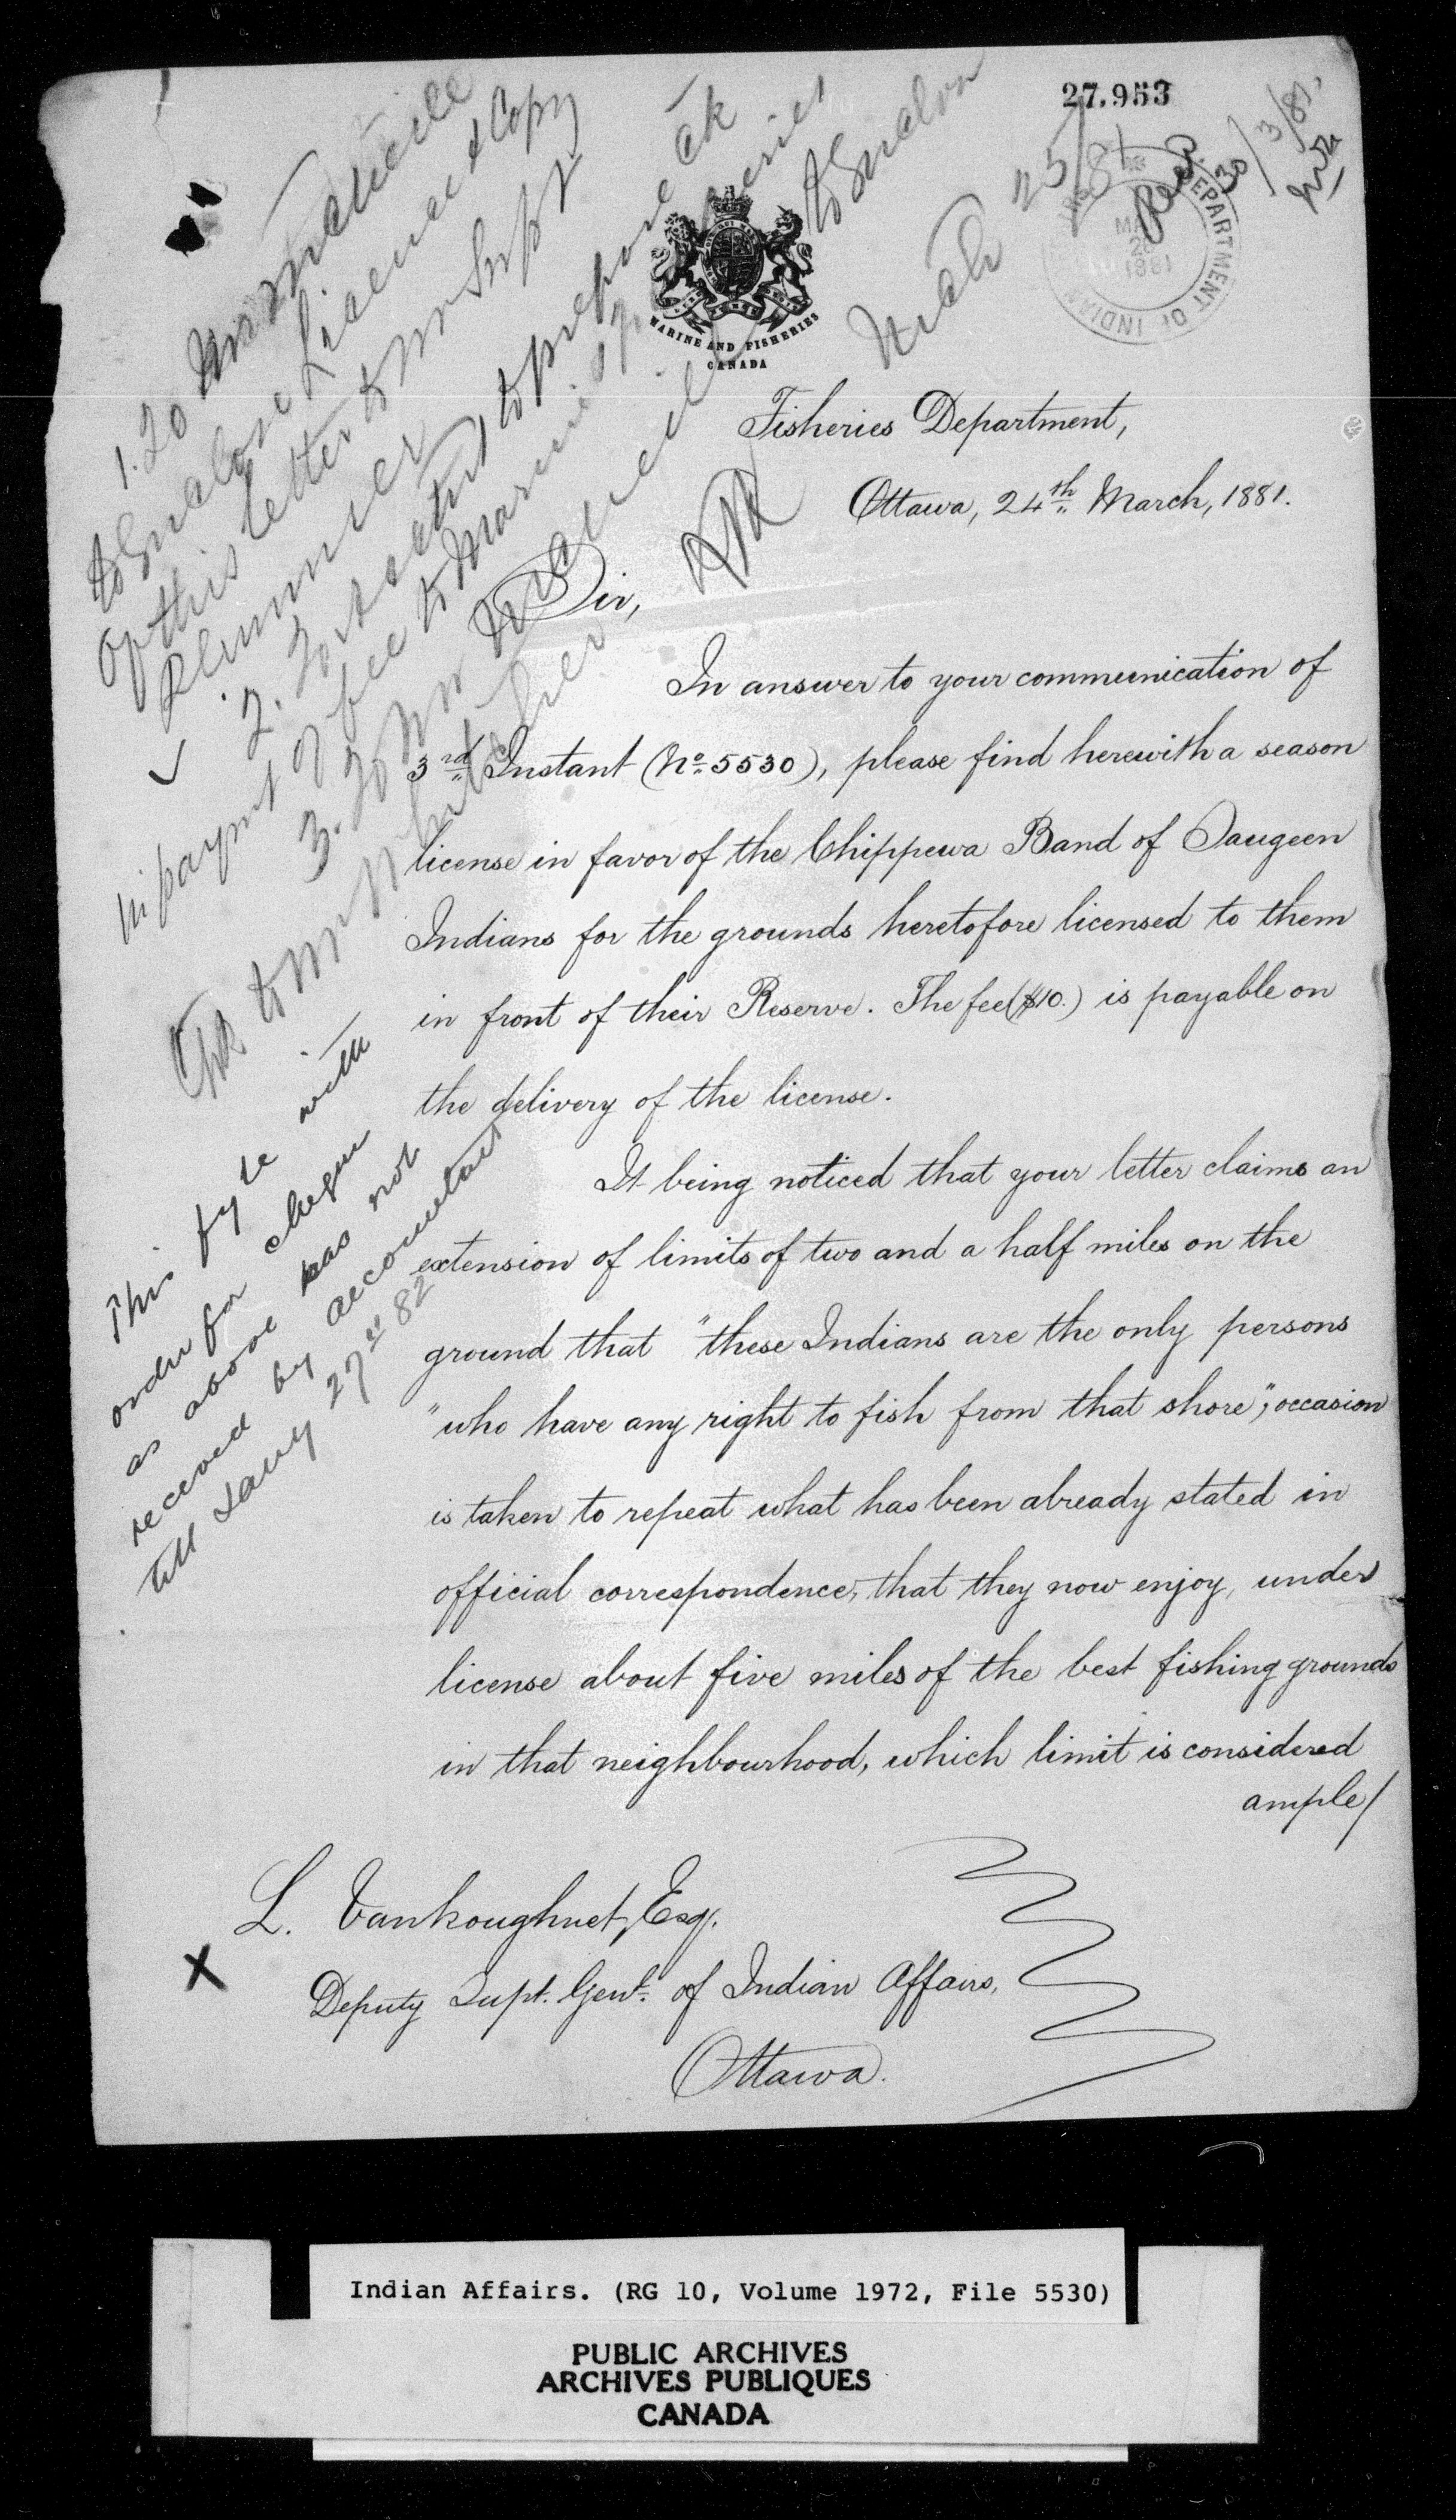 27,953
Recd. 30/3/81.
DEPARTMENT OF INDIAN
1881
MARINE AND FISHERIES
CANADA
Fisheries Department,
Ottawa, 24th March, 1881.
Sir,
In answer to your communication of
3rd Instant (No. 5530), please find herewith a season
license in favor of the Chippewa Band of Saugeen
Indians for the grounds heretofore licensed to them
in front of their Reserve. The fee ($10.) is payable on
the delivery of the license.
It being noticed that your letter claims an
extension of limits of two and a half miles on the
ground that "these Indians are the only persons
"who have any right to fish from that shore"; occasion
is taken to repeat what has been already stated in
official correspondence, that they now enjoy, under
license about five miles of the best fishing grounds
in that neighbourhood, which limit is considered
ample/
L. Vankoughnet, Esq.
Deputy Supt. Genl. of Indian Affairs,
Ottawa.
1. To
to Enclose License & Copy
of this letter to Mr Supt
Plummer
2. To Acctnt to prepare Ck
in paymt of fee to Marine & Fisheries
3. To Mr to Enclose
Ck to Mr Whitcher
March 25/81
This fyle with
order for cheque
as above has not
received by accountant
till Jany 27th 82
X
Indian Affairs. (RG 10, Volume 1972, File 5530)
PUBLIC ARCHIVES
ARCHIVES PUBLIQUES
CANADA